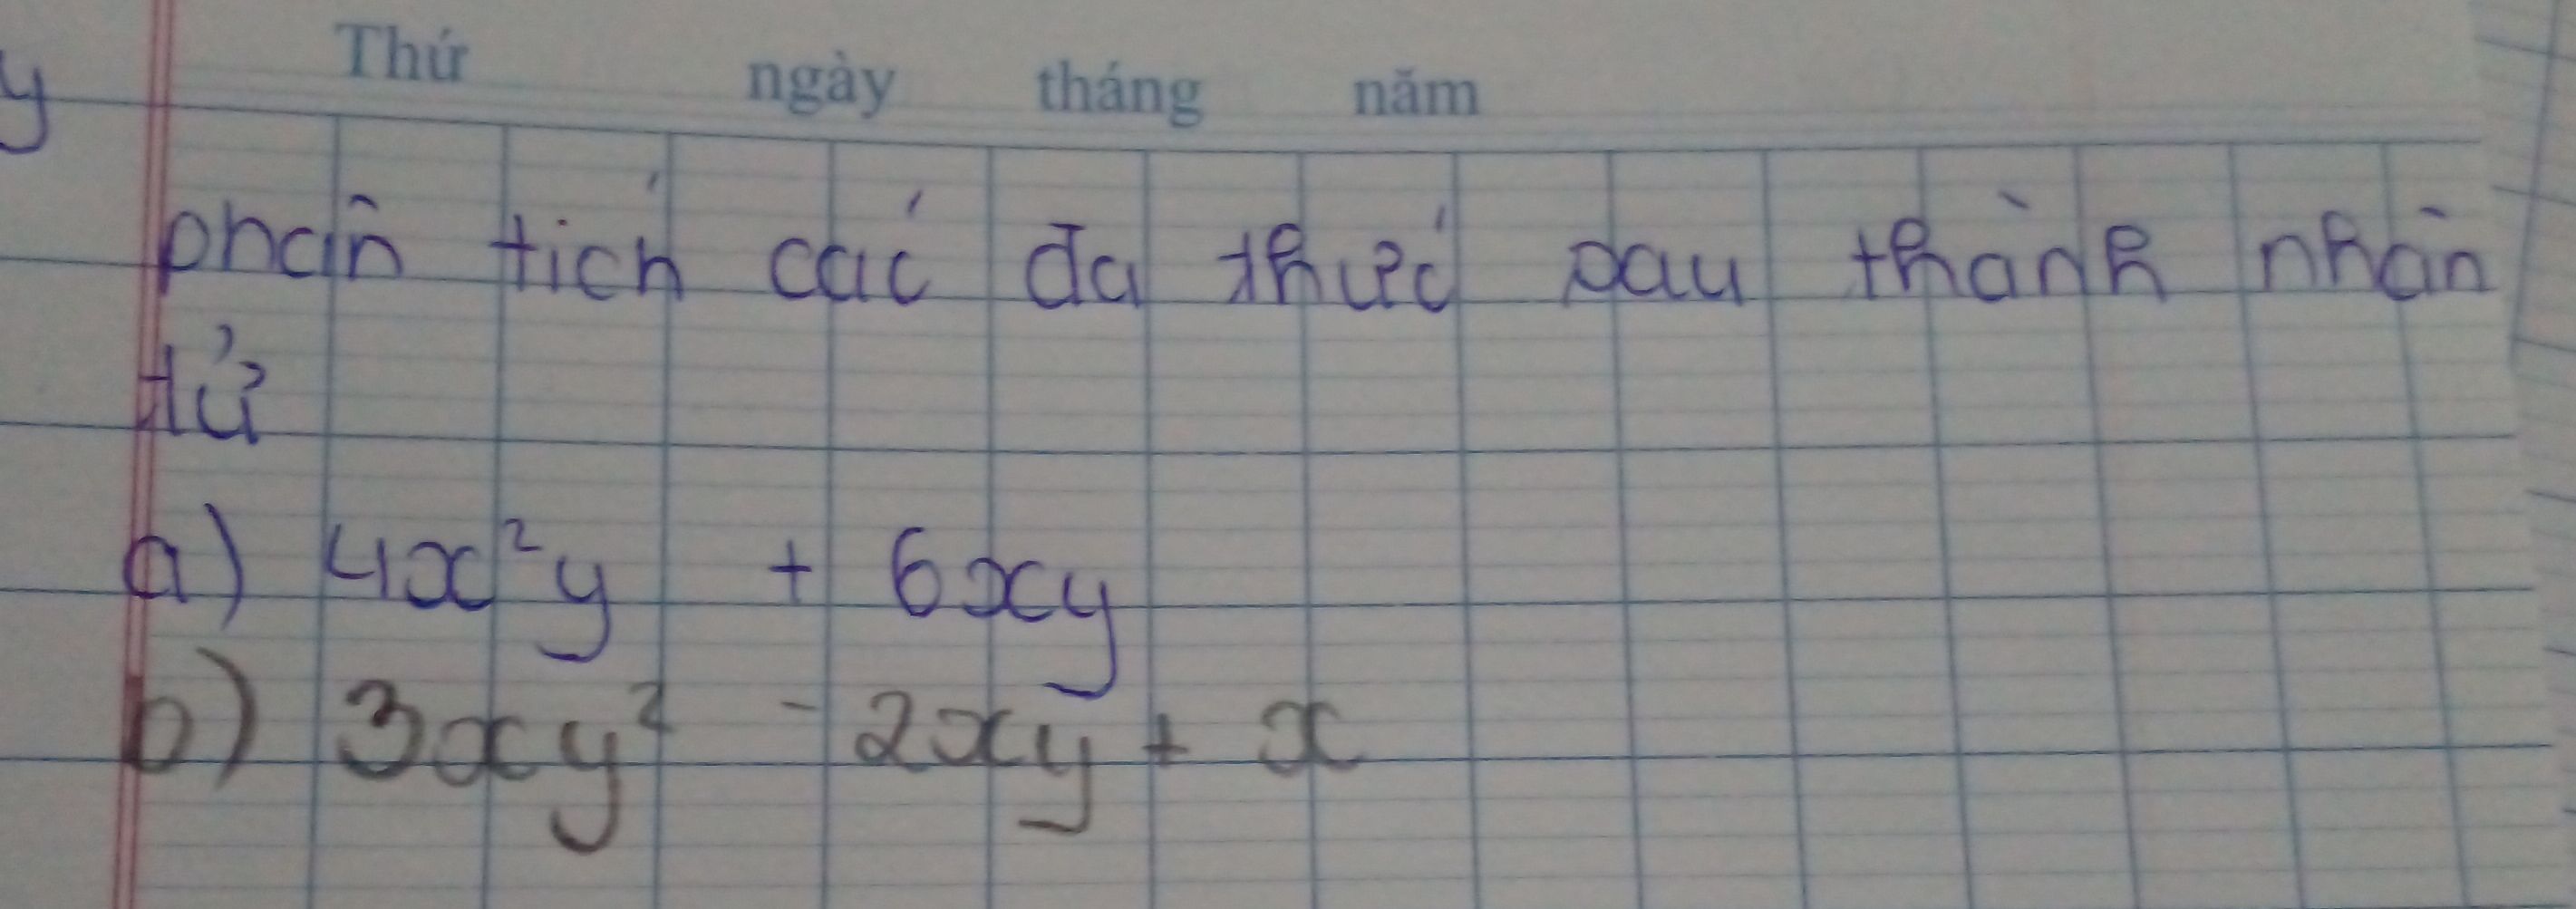 Thứ ngày tháng năm
y
phân tích các đa thức sau thành nhân
tử
a) 4x²y + 6xy
b) 3xy² - 2xy + x